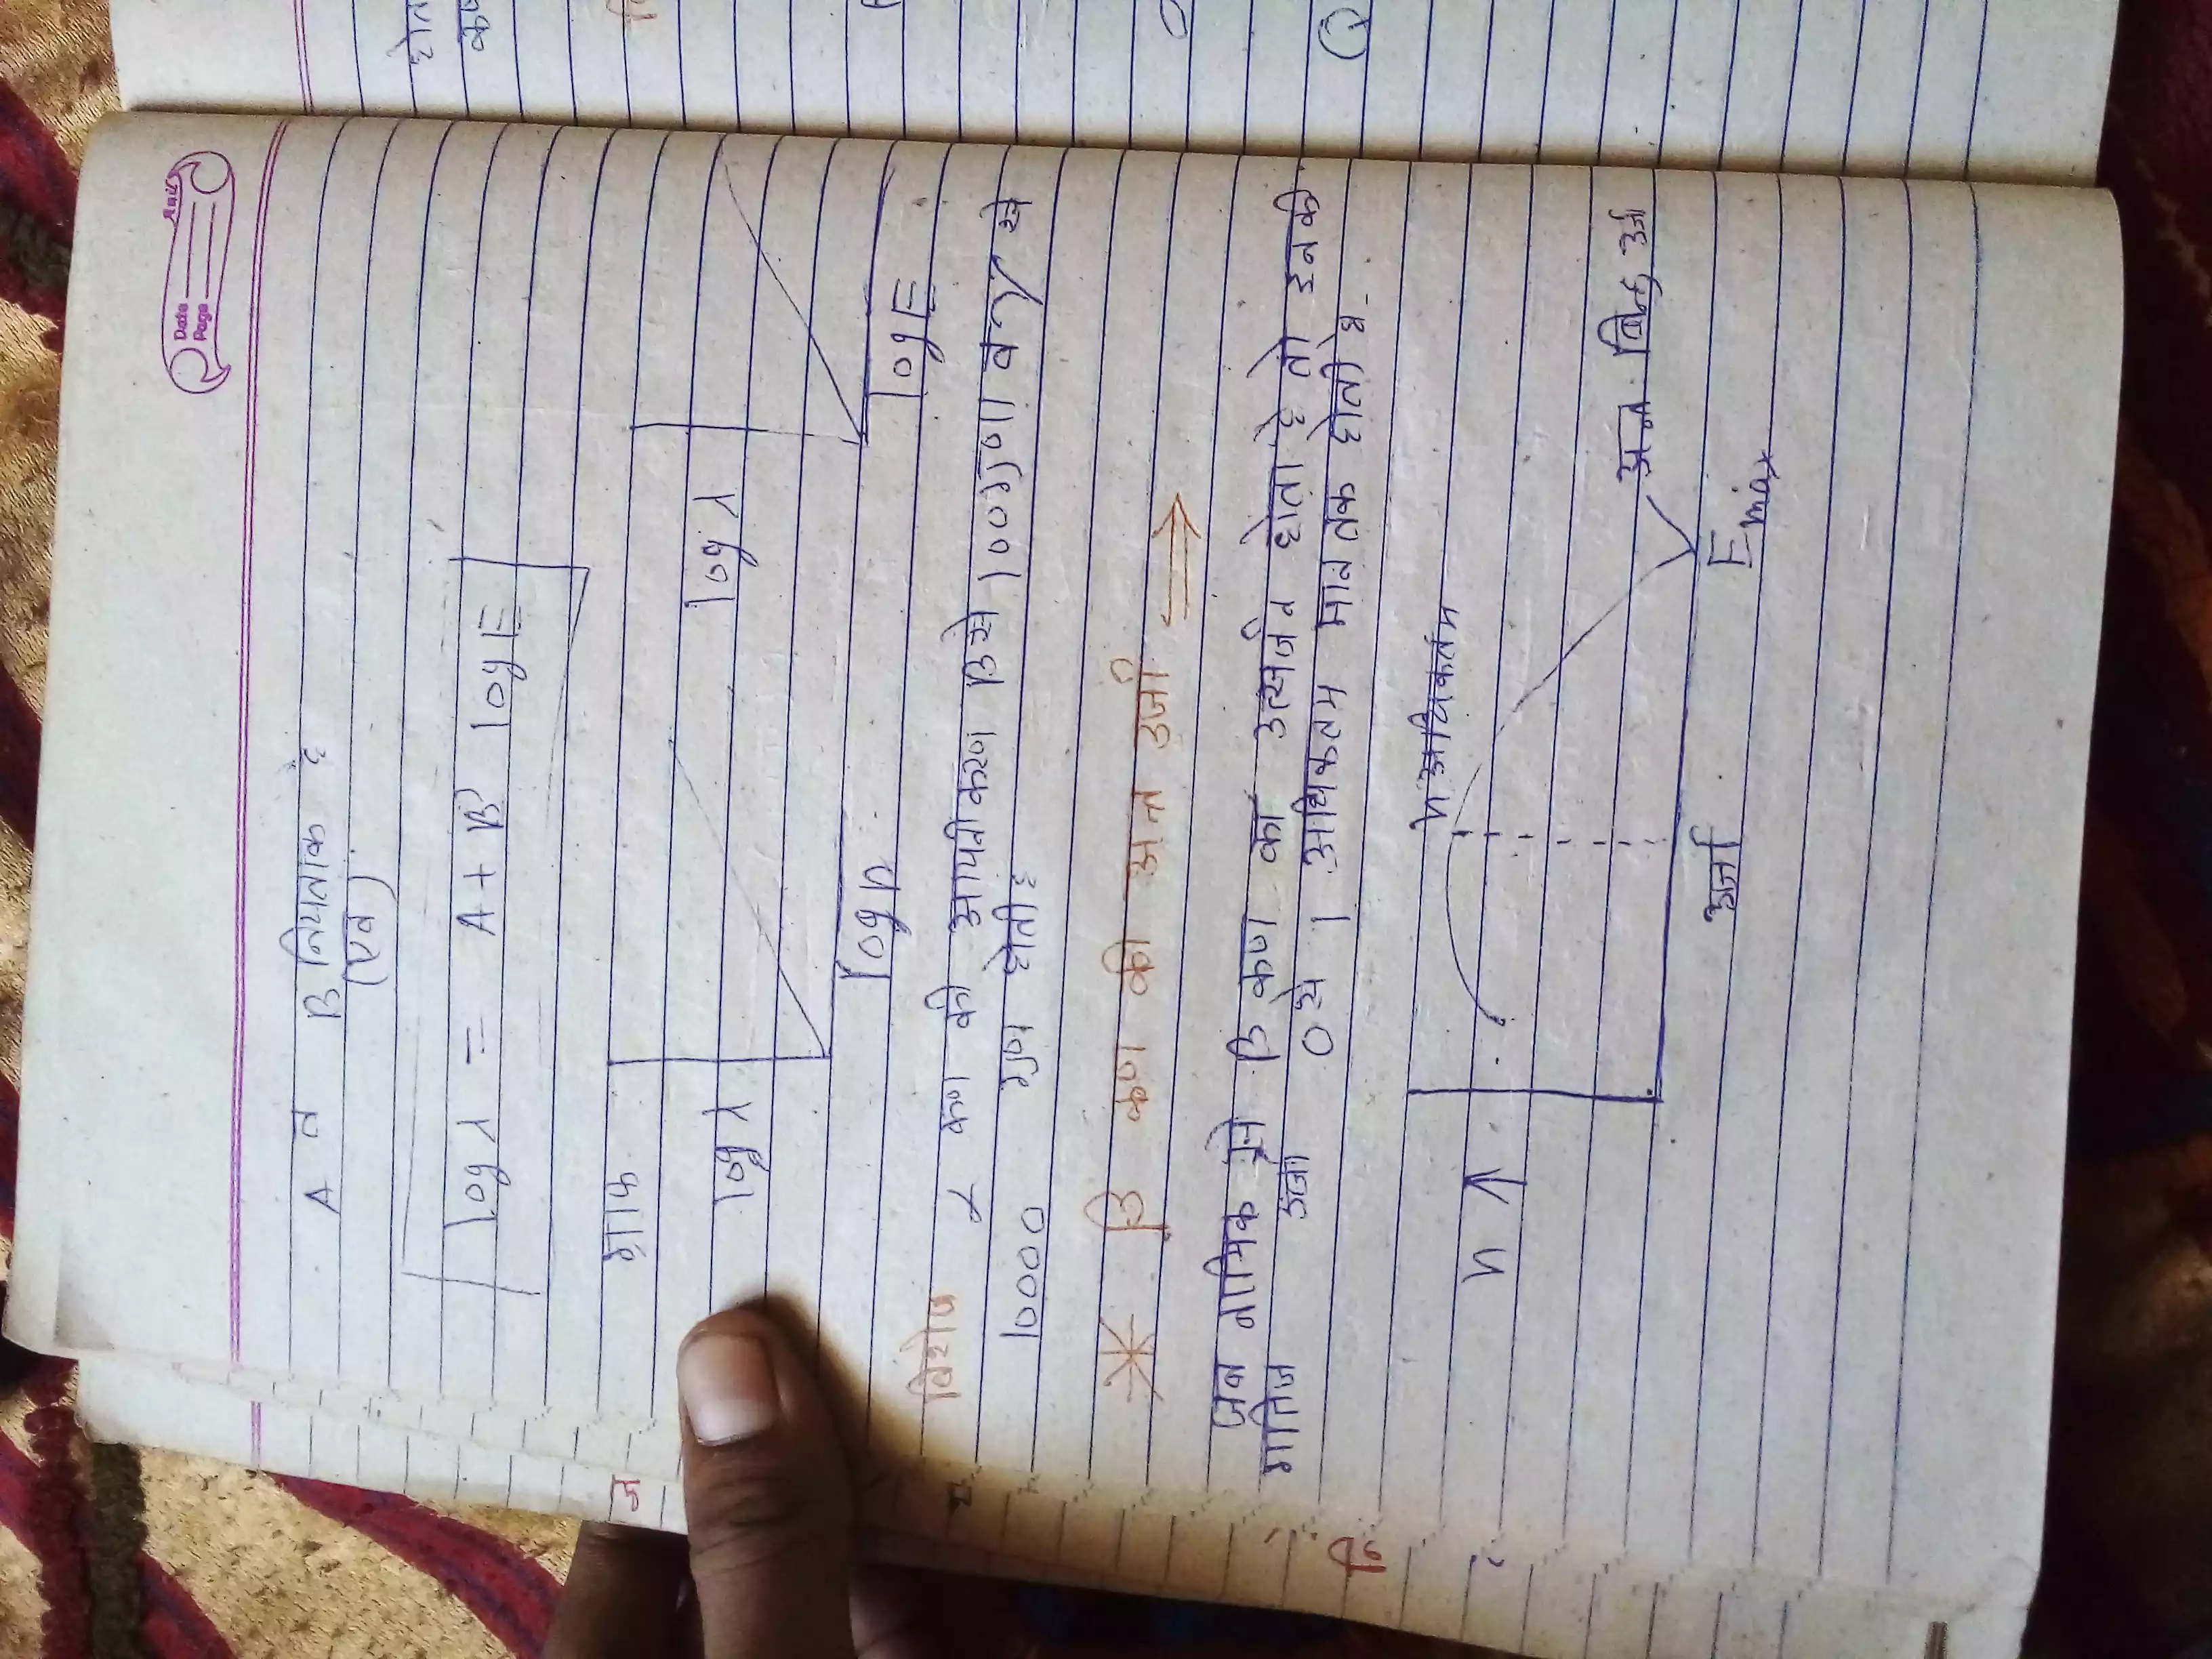 Anil
Date
Page
A व B नियतांक है
(एवं)
log λ = A + B log E
ग्राफ
log λ
log λ
log R
log E
विशेष
α कण की आयनीकरण β से 100 गुणा व γ से
10000 गुण होती है
* β कण की अन्त उर्जा ⇒
जब नाभिक से β कण का उत्सर्जन होता है तो इनकी
गतिज उर्जा 0 से 1 अधिकतम मान तक होती है
n अधिकतम
n ↑
अन्त बिन्दु उर्जा
उर्जा
Emax